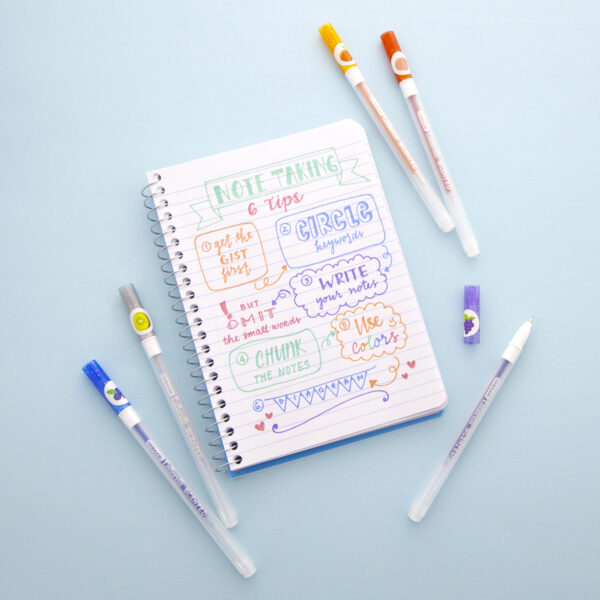 NOTE TAKING
6 tips
① get the
GIST
first
② CIRCLE
keywords
③ WRITE
your notes
! BUT
OMIT
the small words
④ CHUNK
THE NOTES
⑤ Use
colors
⑥ DIAGRAM